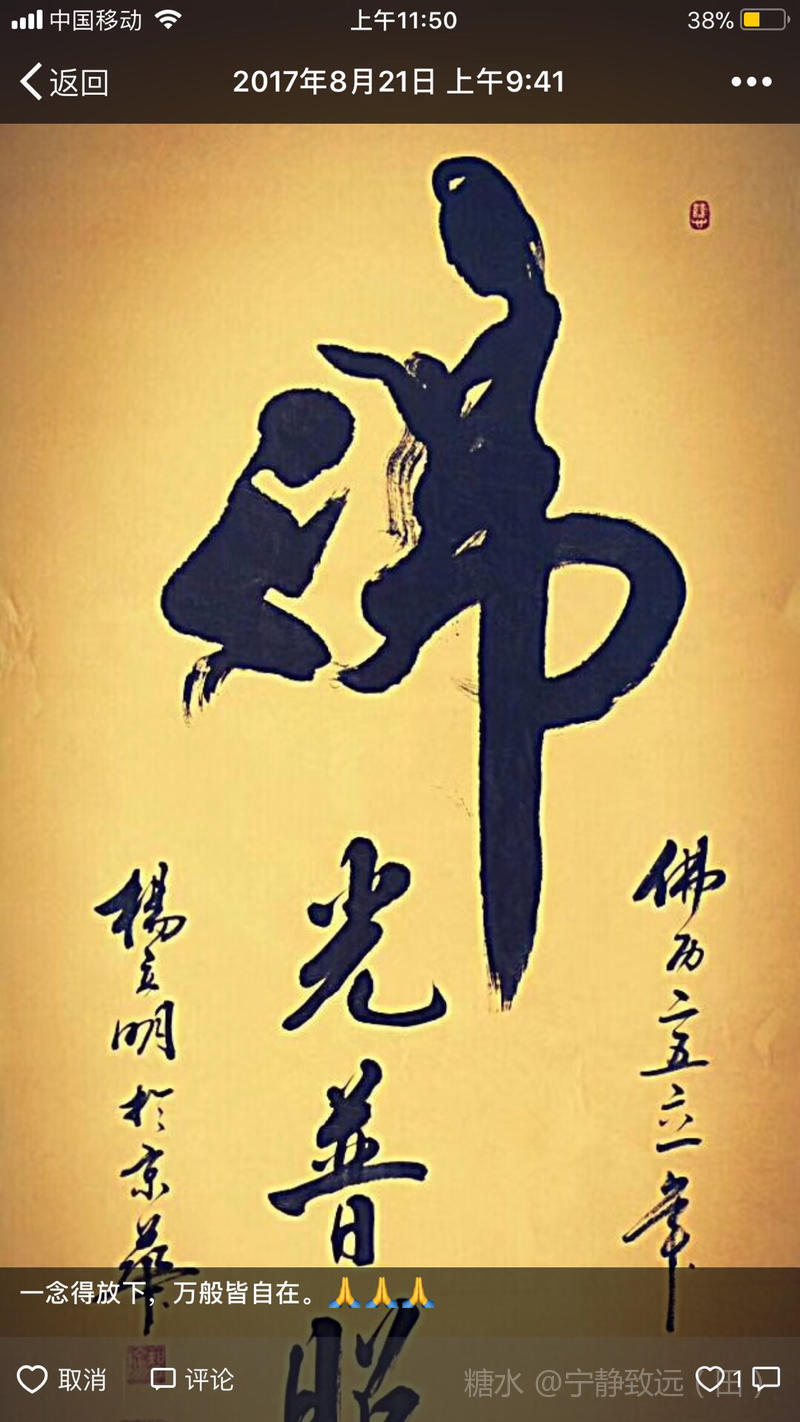 中国移动 上午11:50 38%
返回 2017年8月21日 上午9:41
佛
光普照
佛历二五六一年
杨立明於京华
一念得放下，万般皆自在。🙏🙏🙏
取消 评论 1
糖水 @宁静致远（田）